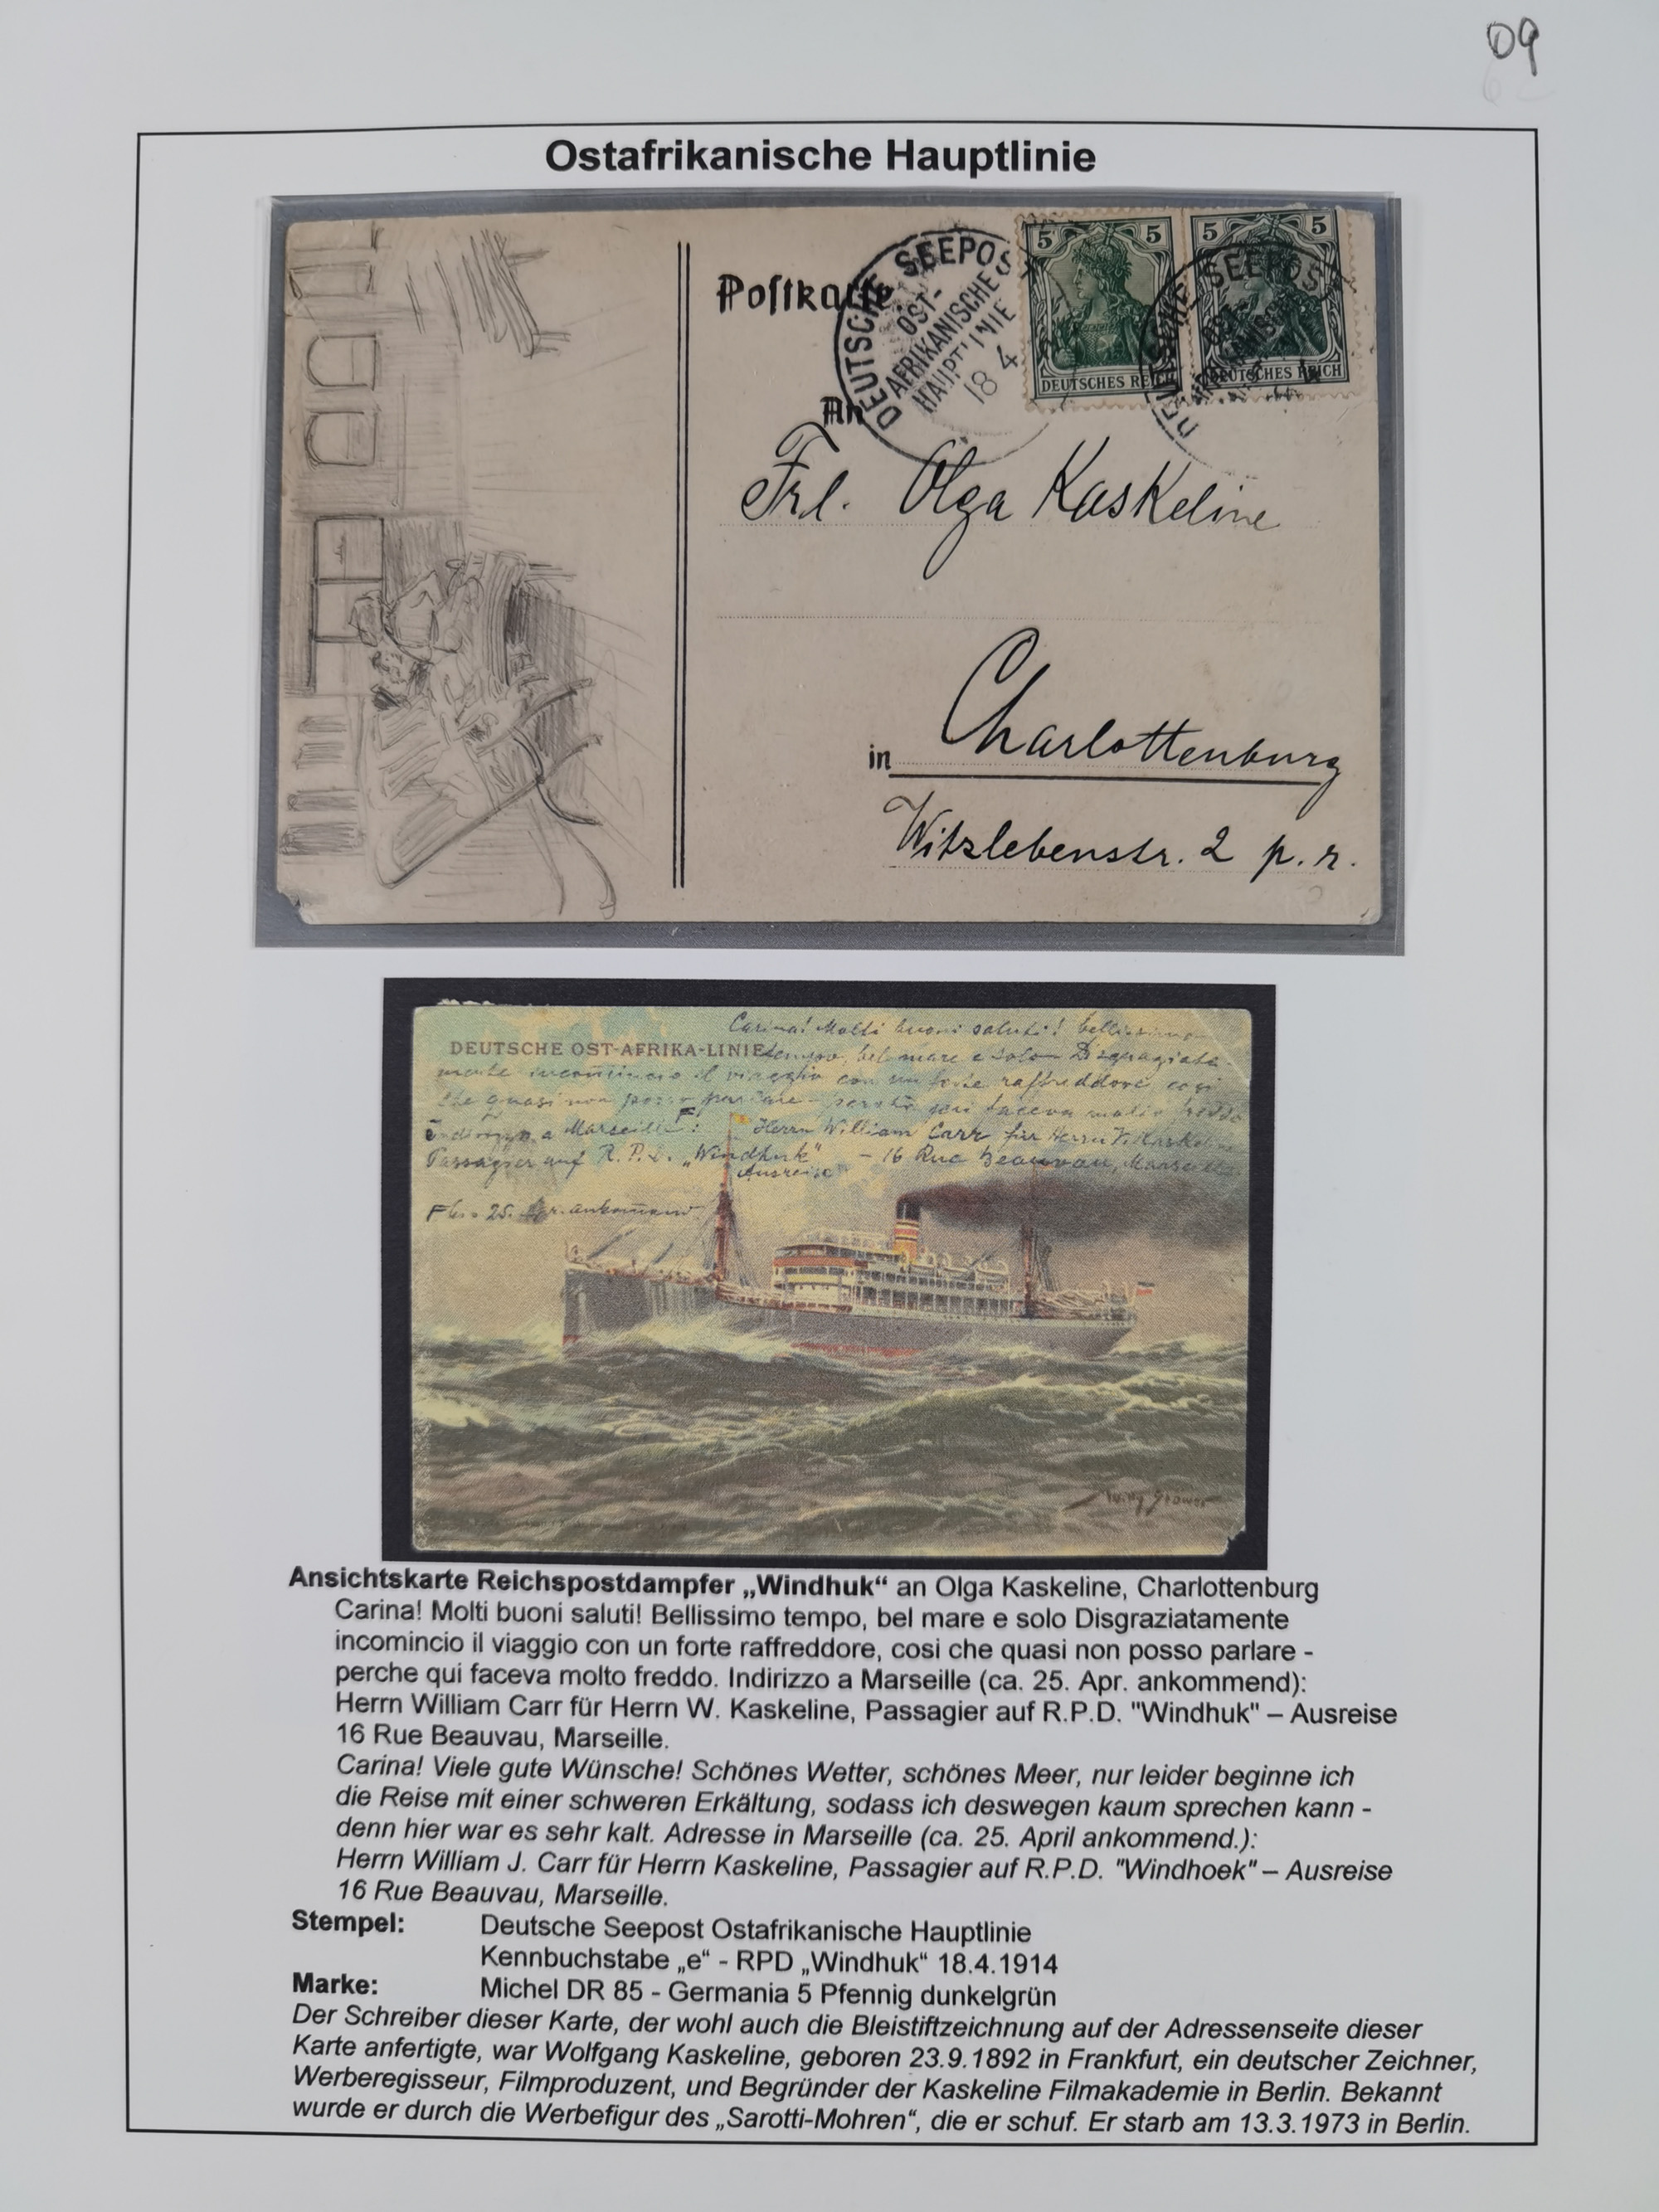 09
Ostafrikanische Hauptlinie
DEUTSCHE SEEPOST
OST-
AFRIKANISCHE
HAUPTLINIE
18 4
5 5
DEUTSCHES REICH
5 5
DEUTSCHES REICH
DEUTSCHE SEEPOST
Postkarte
An
Frl. Olga Kaskeline
in Charlottenburg
Witzlebenstr. 2 p. r.
Carina! Molti buoni saluti! bellissimo
DEUTSCHE OST-AFRIKA-LINIE
tempo, bel mare e solo Disgraziata-
mente incomincio il viaggio con un forte raffreddore cosi
che quasi non posso parlare - perche qui faceva molto freddo
Indirizzo a Marseille: Herrn William Carr für Herrn W. Kaskeline
Passagier auf R.P.D. „Windhuk" - 16 Rue Beauvau, Marseille.
Ausreise
25. Apr. ankommend
Willy Stöwer
Ansichtskarte Reichspostdampfer „Windhuk“ an Olga Kaskeline, Charlottenburg
Carina! Molti buoni saluti! Bellissimo tempo, bel mare e solo Disgraziatamente
incomincio il viaggio con un forte raffreddore, cosi che quasi non posso parlare -
perche qui faceva molto freddo. Indirizzo a Marseille (ca. 25. Apr. ankommend):
Herrn William Carr für Herrn W. Kaskeline, Passagier auf R.P.D. "Windhuk" – Ausreise
16 Rue Beauvau, Marseille.
Carina! Viele gute Wünsche! Schönes Wetter, schönes Meer, nur leider beginne ich
die Reise mit einer schweren Erkältung, sodass ich deswegen kaum sprechen kann -
denn hier war es sehr kalt. Adresse in Marseille (ca. 25. April ankommend.):
Herrn William J. Carr für Herrn Kaskeline, Passagier auf R.P.D. "Windhoek" – Ausreise
16 Rue Beauvau, Marseille.
Stempel: Deutsche Seepost Ostafrikanische Hauptlinie
Kennbuchstabe „e“ - RPD „Windhuk“ 18.4.1914
Marke: Michel DR 85 - Germania 5 Pfennig dunkelgrün
Der Schreiber dieser Karte, der wohl auch die Bleistiftzeichnung auf der Adressenseite dieser
Karte anfertigte, war Wolfgang Kaskeline, geboren 23.9.1892 in Frankfurt, ein deutscher Zeichner,
Werberegisseur, Filmproduzent, und Begründer der Kaskeline Filmakademie in Berlin. Bekannt
wurde er durch die Werbefigur des „Sarotti-Mohren“, die er schuf. Er starb am 13.3.1973 in Berlin.